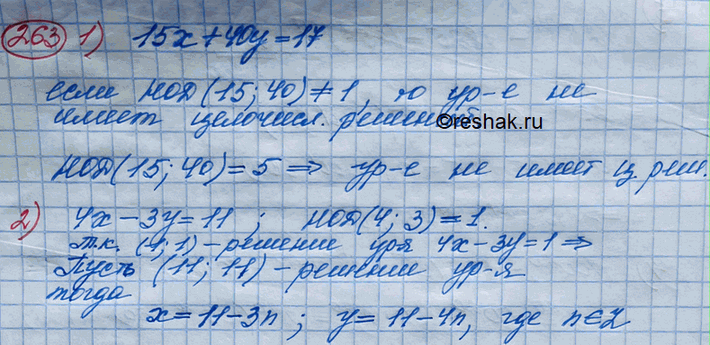 263 1) 15x+40y=17
если НОД(15; 40)≠1, то ур-е не
имеет целочисл. решений
©reshak.ru
НОД(15; 40)=5 ⇒ ур-е не имеет ц. реш.
2) 4x-3y=11 ; НОД(4; 3)=1.
т.к. (1; 1)-решение ур-я 4x-3y=1⇒
Пусть (11; 11)-решение ур-я
тогда
x=11-3n ; y=11-4n, где n∈Z